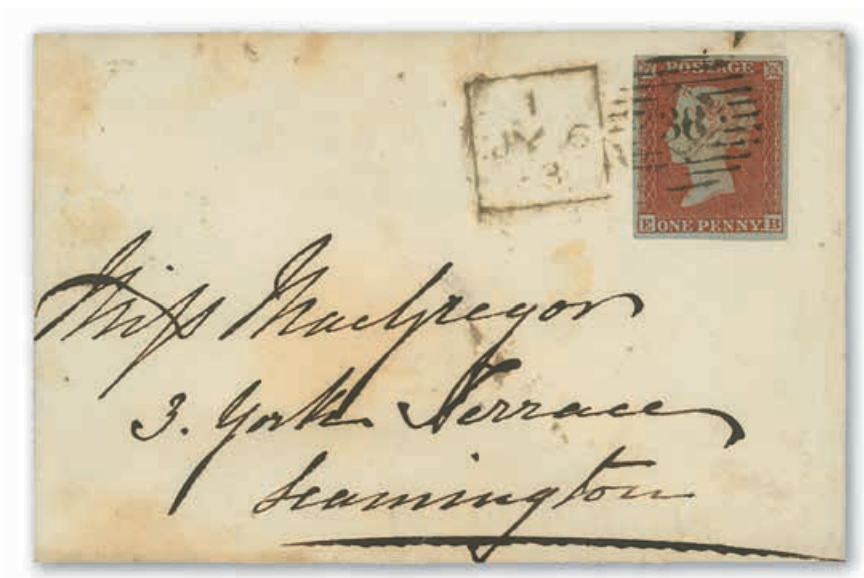 POSTAGE
38
E ONE PENNY. B
1
6
3
Miss MacGregor
3. York Terrace
Leamington